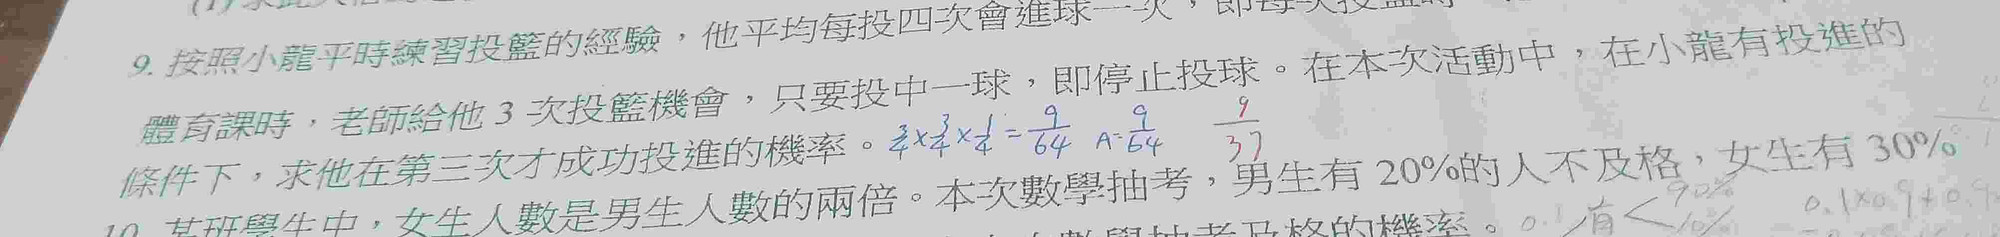 9. 按照小龍平時練習投籃的經驗，他平均每投四次會進球一次，即每次投籃時
體育課時，老師給他 3 次投籃機會，只要投中一球，即停止投球。在本次活動中，在小龍有投進的
條件下，求他在第三次才成功投進的機率。 3/4×3/4×1/4=9/64 A=9/64 9/37
10. 某班學生中，女生人數是男生人數的兩倍。本次數學抽考，男生有 20%的人不及格，女生有 30%
數學抽考及格的機率。 0.1 有 < 90% 10% 0.1×0.9+0.9